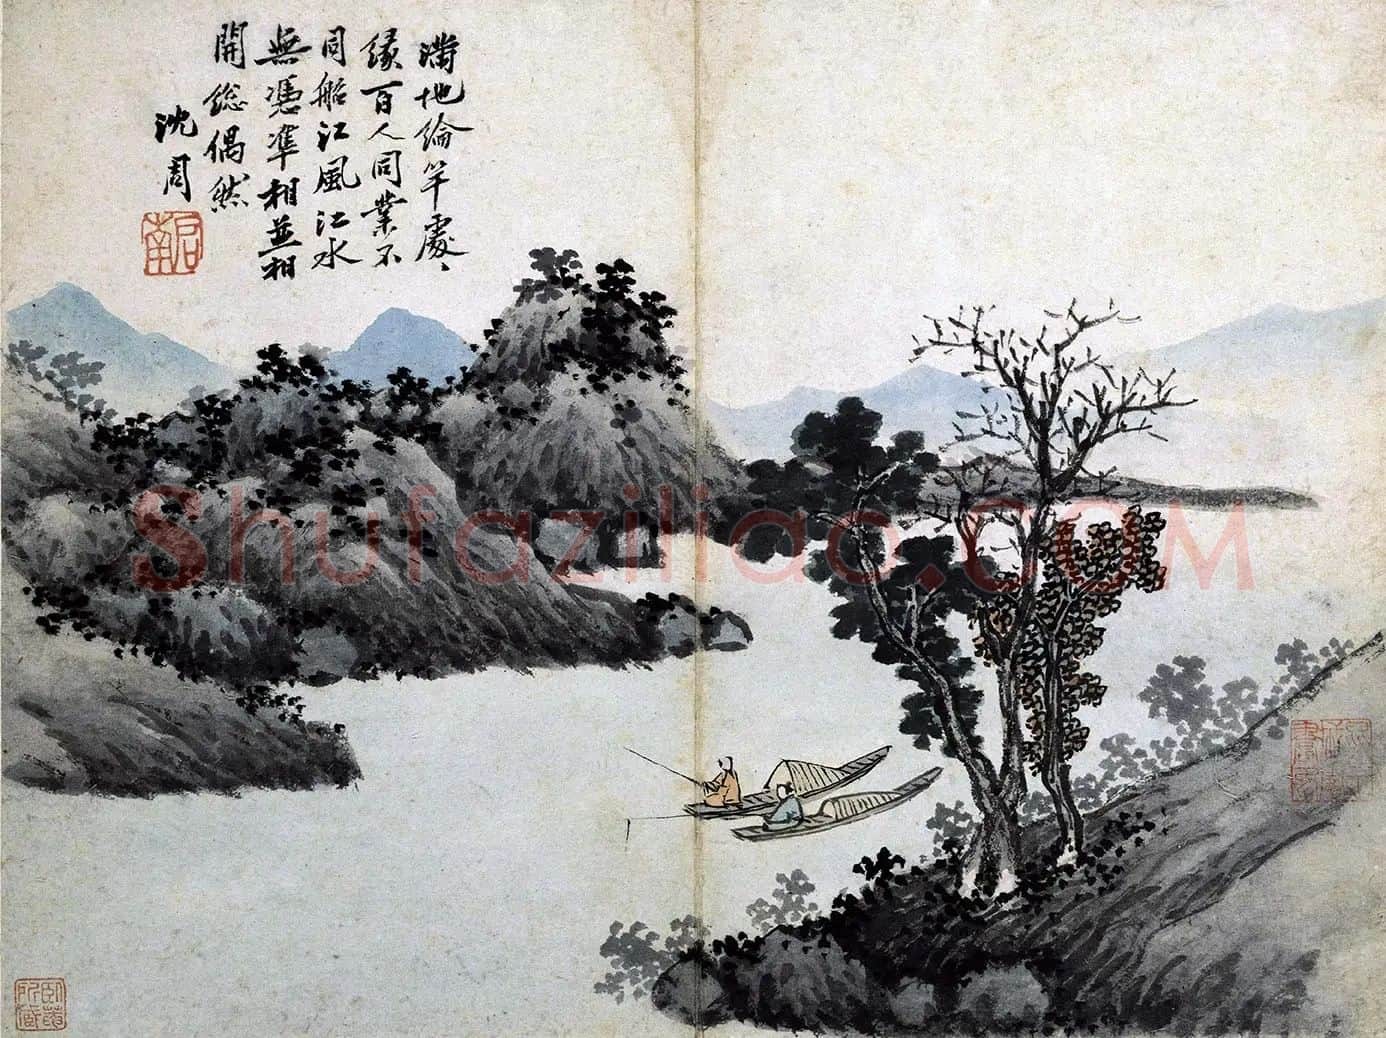 滿地綸竿處〻
緣百人同業不
同船江風江水
無憑準相並相
開総偶然
沈周
启南
卧菴所藏
Shufaziliao.COM